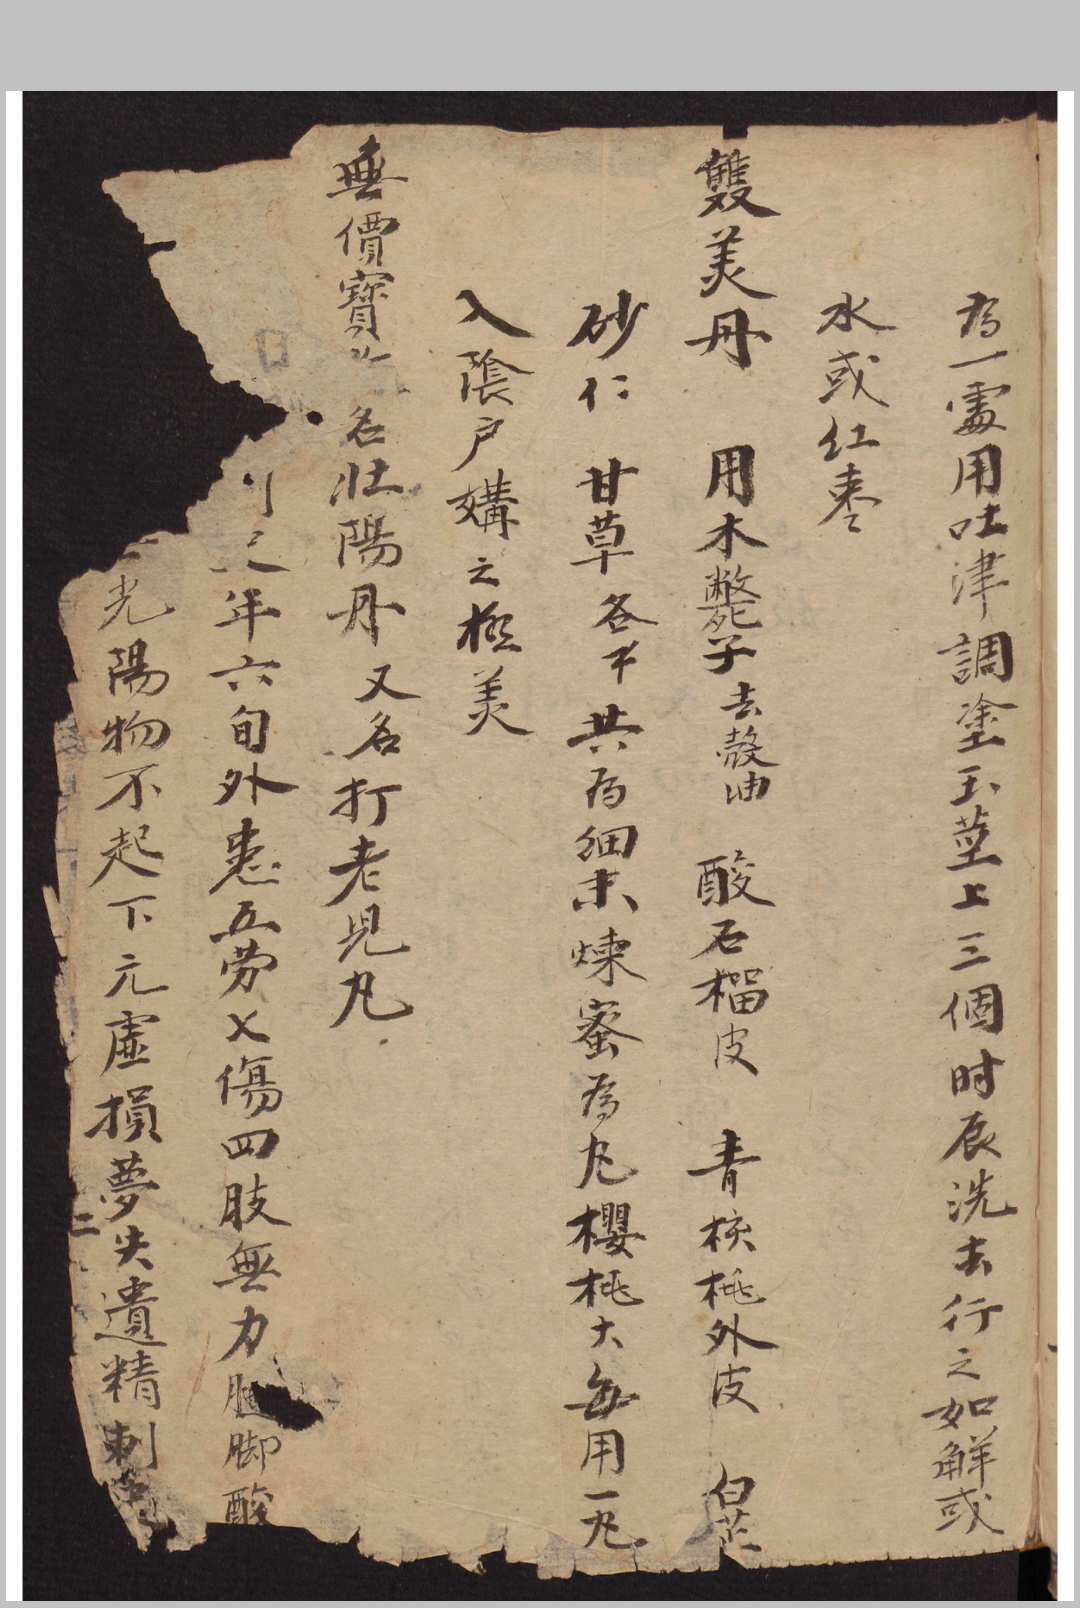 為一處用吐津調塗玉莖上三個时辰洗去行之如觧或
水或紅棗
雙美丹 用木鼈子去殼油 酸石榴皮 青核桃外皮 白芷
砂仁 甘草各下共為細末煉蜜為丸櫻桃大每用一丸
入陰户媾之極美
無價寶 名壯陽丹又名打老児丸
年六旬外患五劳乂傷四肢無力腿脚酸
光陽物不起下元虛損夢失遺精刺
二